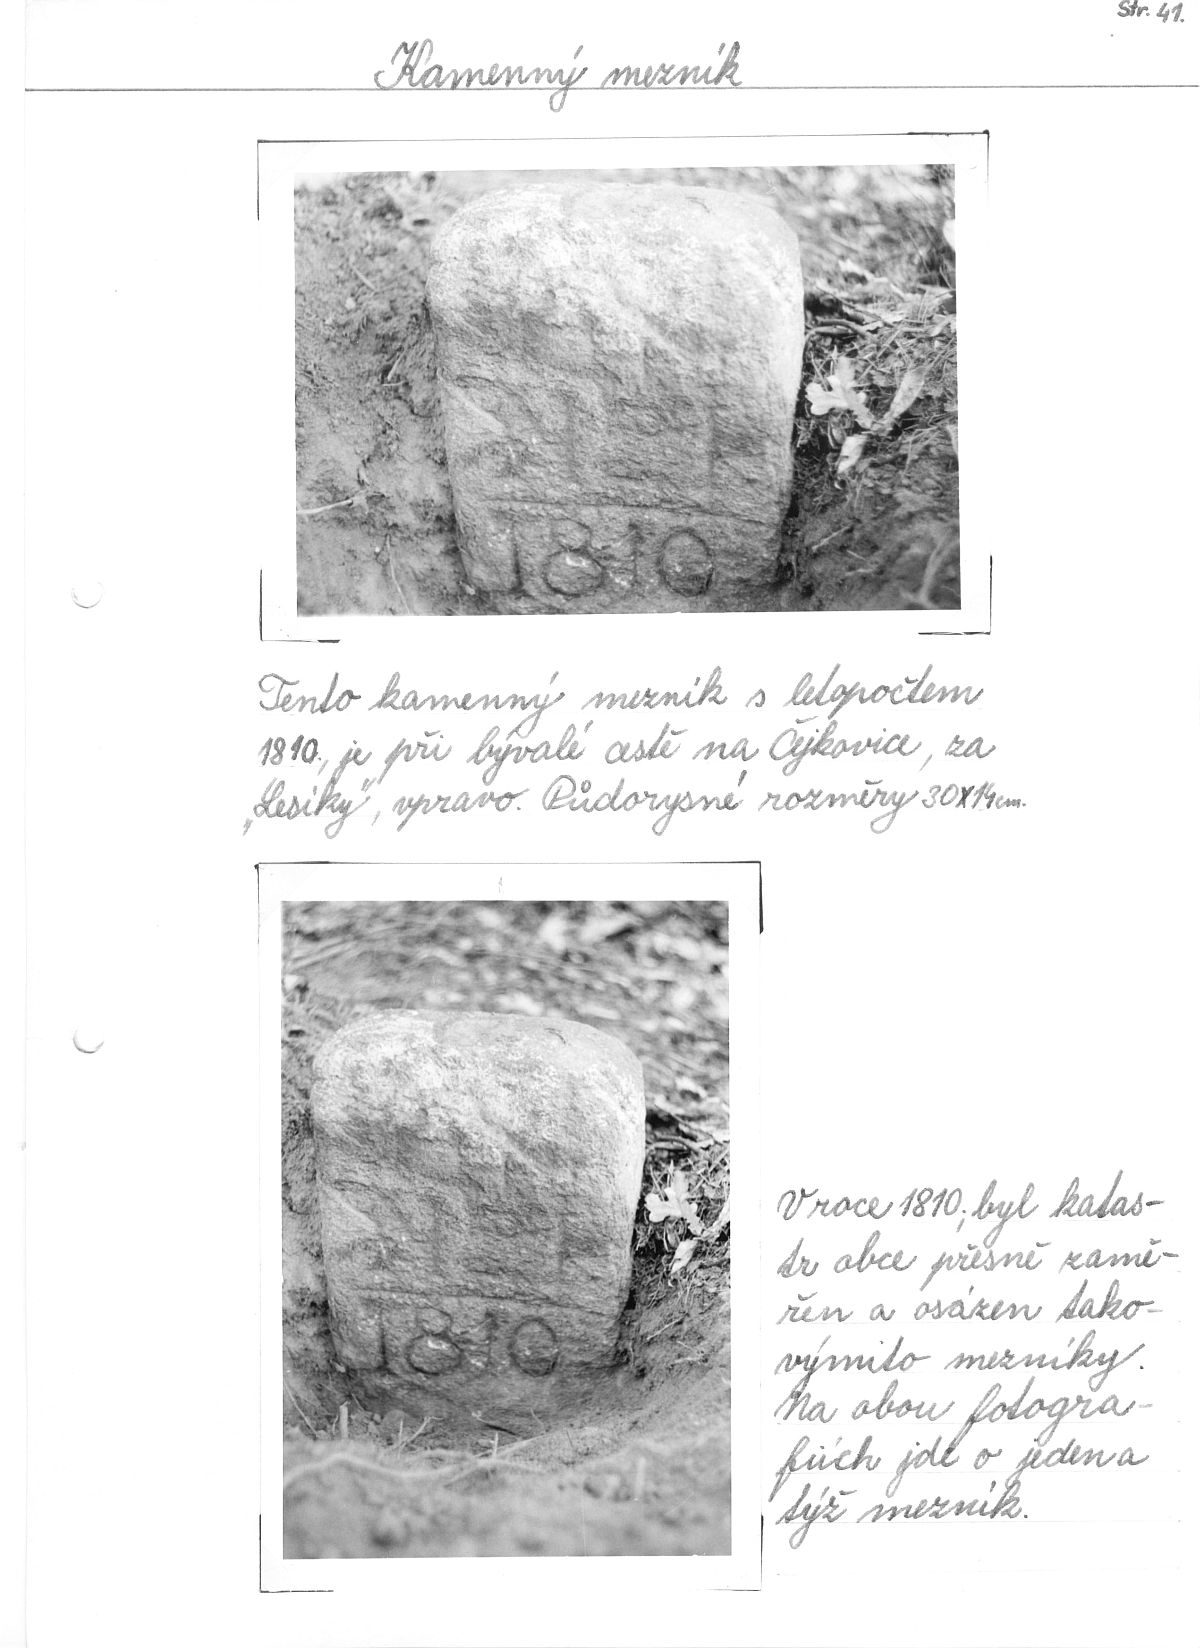 Str. 41.
Kamenný mezník
1810
Tento kamenný mezník s letopočtem
1810., je při bývalé cestě na Čejkovice, za
„Lesíky", vpravo. Půdorysné rozměry 30x14cm.
1810
V roce 1810, byl katas-
tr obce přesně zamě-
řen a osázen tako-
výmito mezníky.
Na obou fotogra-
fiích jde o jeden a
týž mezník.